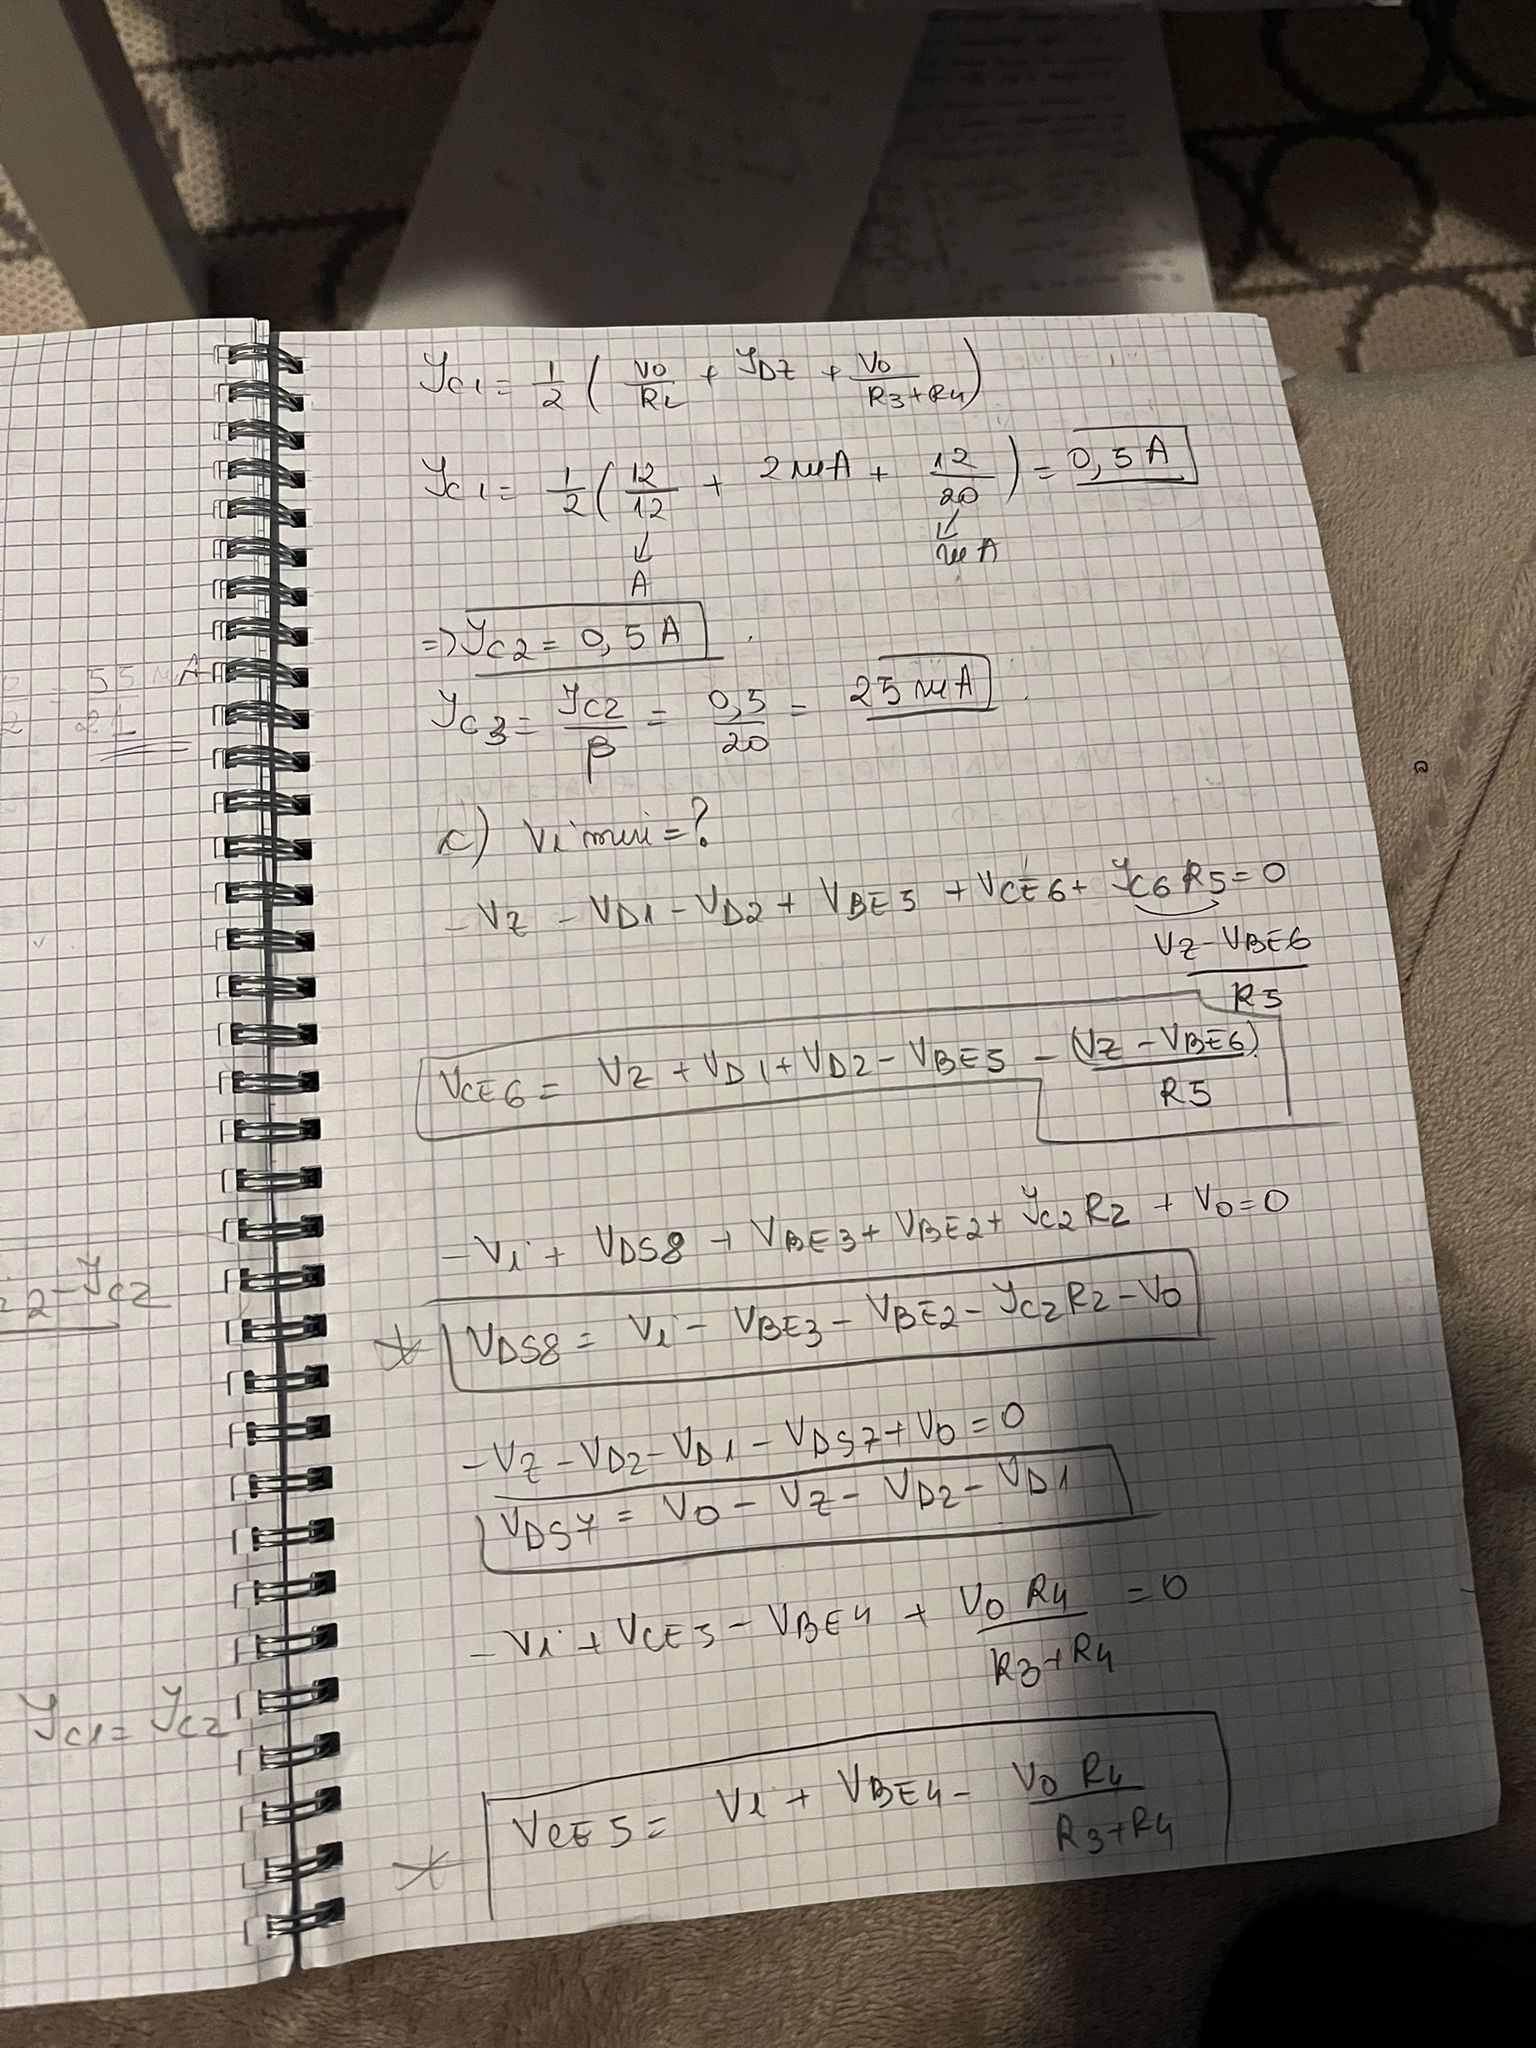 55 mA
21
2 - Jc2
Jc1 = Jc2
Jc1 = 1/2 ( V0/RL + JDZ + V0/(R3+R4) )
Jc1 = 1/2 ( 12/12 + 2mA + 12/20 ) = 0,5 A
↓ A
↓ mA
=> Jc2 = 0,5 A
Jc3 = Jc2/β = 0,5/20 = 25 mA
c) Vi min = ?
- VZ - VD1 - VD2 + VBE5 + VCE6 + Jc6 R5 = 0
(VZ - VBE6)/R5
VCE6 = VZ + VD1 + VD2 - VBE5 - (VZ - VBE6)/R5
- Vi + VDS8 + VBE3 + VBE2 + Jc2 R2 + V0 = 0
* VDS8 = Vi - VBE3 - VBE2 - Jc2 R2 - V0
- VZ - VD2 - VD1 - VDS7 + V0 = 0
VDS7 = V0 - VZ - VD2 - VD1
- Vi + VCE5 - VBE4 + V0 R4/(R3+R4) = 0
* VCE5 = Vi + VBE4 - V0 R4/(R3+R4)